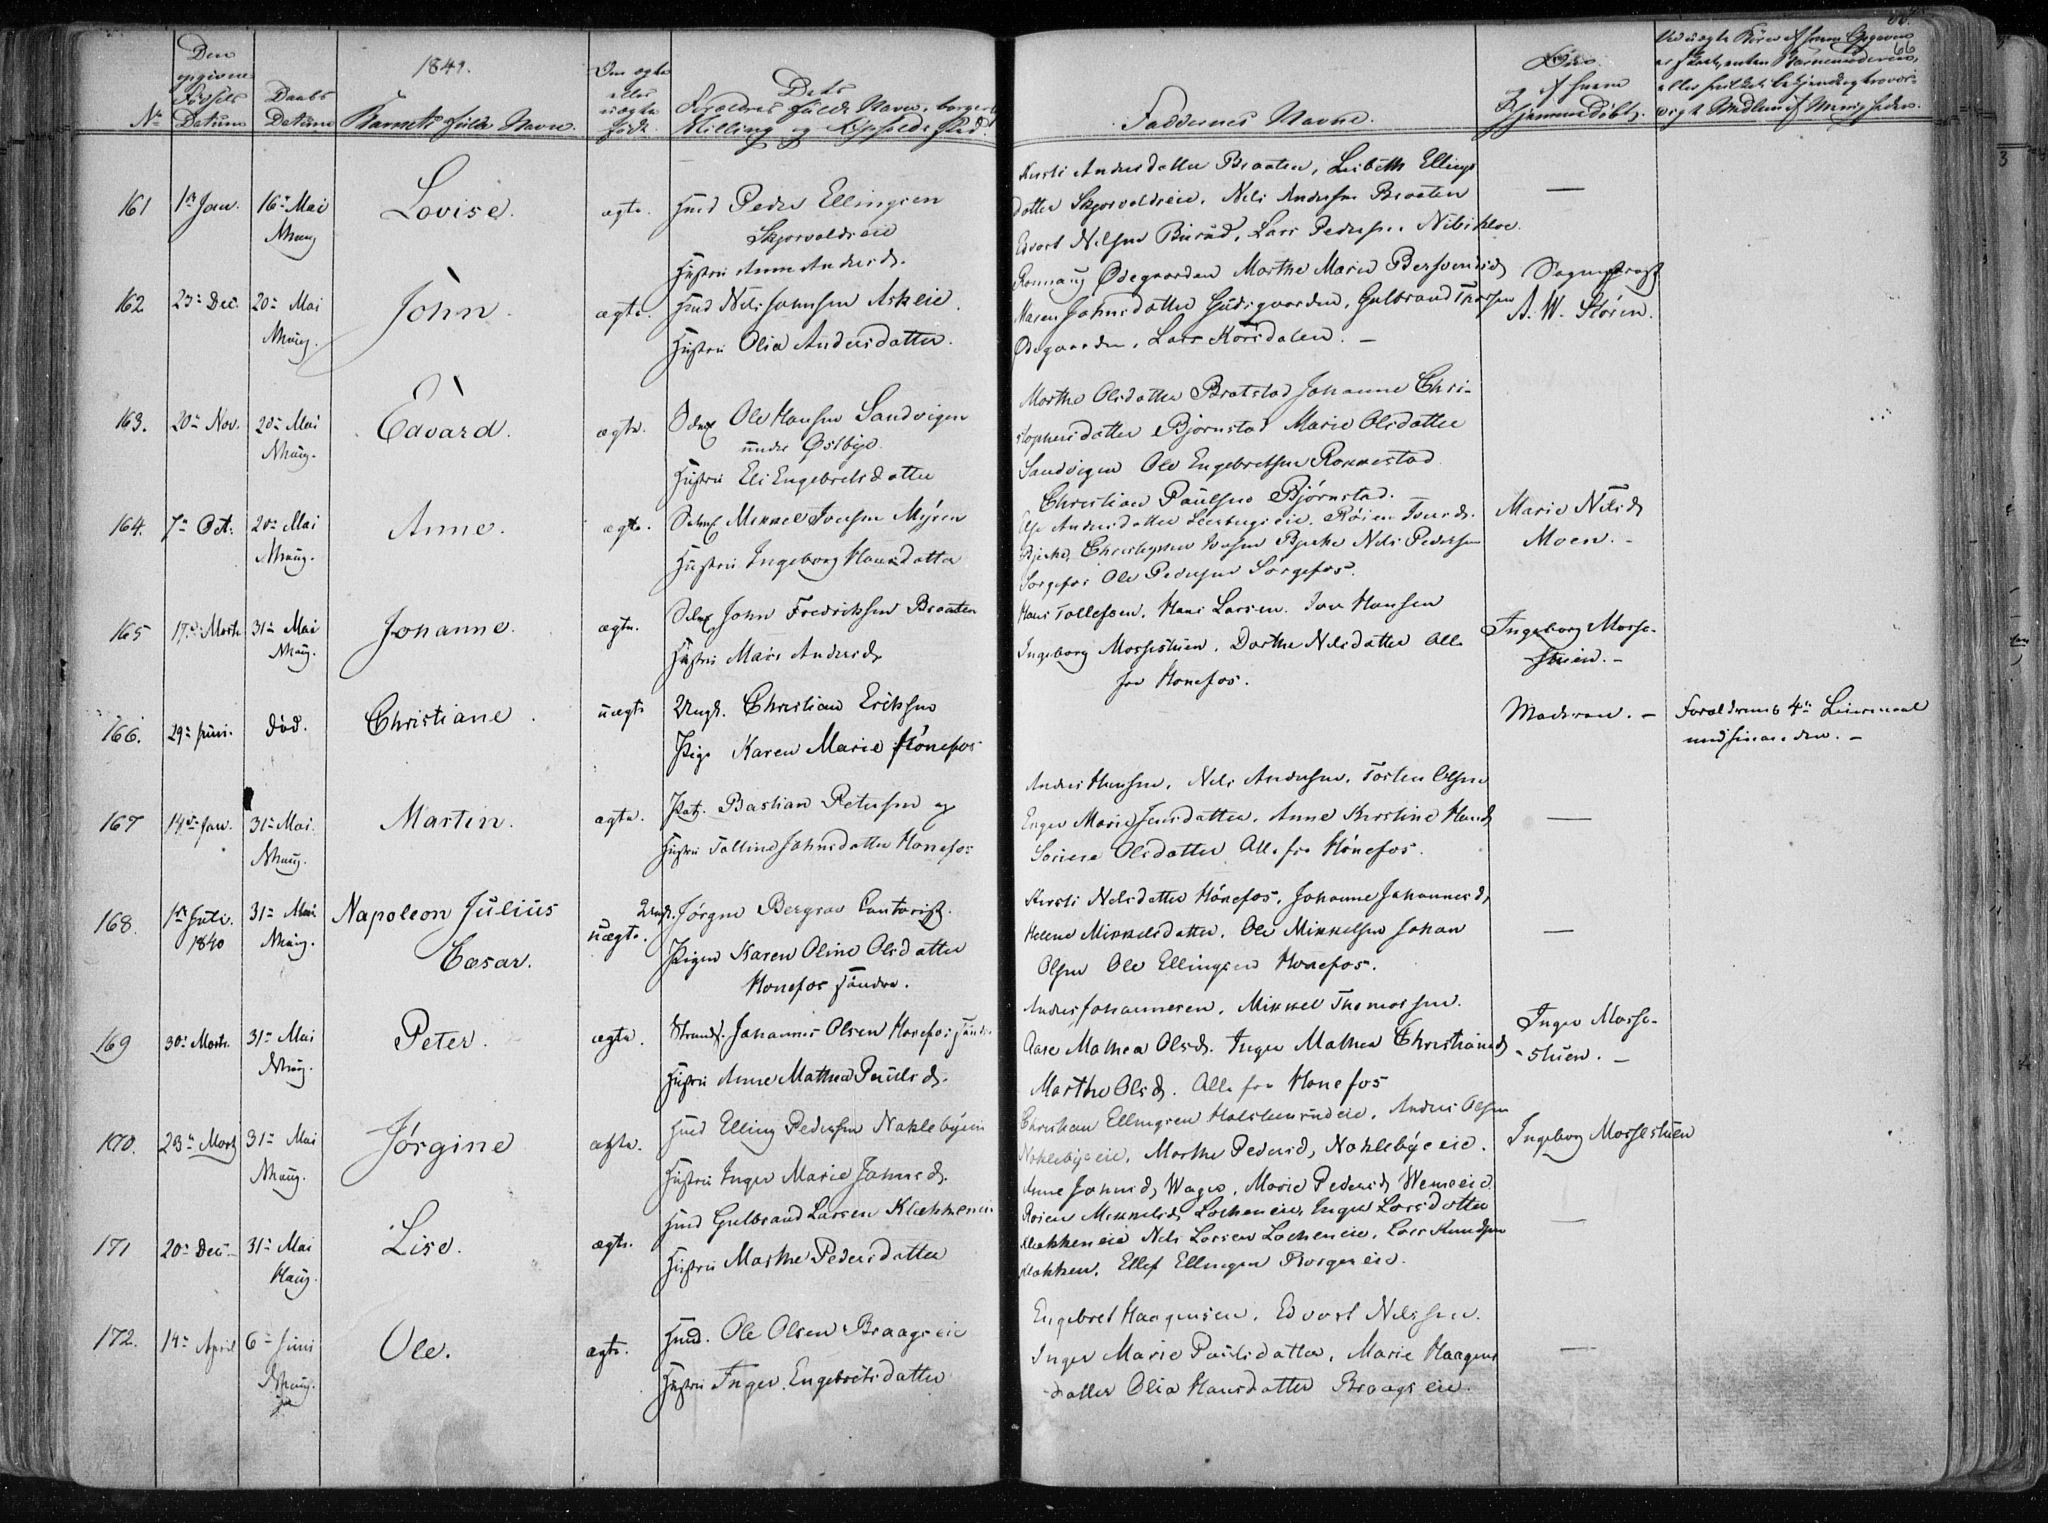 1841.
66
No
Den opgivne Fødsels Datum
Daabs Datum
Barnets fulde Navn.
Om ægte eller uægte født
Dets Forældres fulde Navn, borgerl. Stilling og Opholds Sted.
Faddernes Navne.
og af hvem Hjemmedøbt.
161
1ste Jan.
16de Mai
Nhaug
Lovise.
ægte.
Huusmd Peder Ellingsen
Skjorvoldseie
Hustru Anne Andersd.
Kirsti Andersdatter Braaten, Lisbeth Ellings
datter Skjorvoldseie, Nels Andersen Braaten
Edvart Nilsen Lars Pedersen
162
23de Dec.
20de Mai
Nhaug.
John.
ægte.
Huusmd Nels Johnsen Askeie.
Hustru Olia Andersdatter.
Ronnaug Ødegaarden Marthe Marie
Maren Johnsdatter Gulbrand
Ødegaarden, Lars Korsdalen. –
Sognepræst
A. W. Støren.
163.
20de Nov.
20de Mai
Nhaug.
Edvard.
ægte.
Ole Hansen Sandvigen
under Østbye.
Hustru Eli Engebretsdatter
Marthe Olsdatter Bratstad Johanne Chri-
stophersdatter Bjørnstad Marie Olsdatter
Sandvigen Ole Engebretsen Rommestad
Christian Paulsen Bjørnstad.
164.
7de Oct.
20de Mai
Nhaug.
Anne.
ægte.
Mikkel Iversen Myren
Hustru Ingeborg Hansdatter
Andersdatter Iversd.
Bjerke, Christopher Iversen Bjerke Nels Pedersen
Sørgefos Ole Pedersen Sørgefos.
Marie Nilsd.
Moen. –
165
17de Marts
31te Mai
Nhaug.
Johanne.
ægte.
John Fredriksen Braaten
Hustru Mari Andersd.
Hans Tollefsen. Hans Larsen. Iver Hansen
Ingeborg Mossestuen. Dorthe Nilsdatter Alle
fra Honefos.
Ingeborg Mosse-
stuen. –
166.
29de Juni.
død.
Christiane.
uægte
Ungk. Christian Eriksen
Pige Karen Marie Hönefos
Moderen. –
Forældrenes 4de Leiermaal
med hinanden. –
167
14de Jan.
31te Mai.
Nhaug.
Martin.
ægte.
Bastian Petersen og
Hustru Talline Johnsdatter Honefos
Anders Hansen. Nels Andersen. Torsten Olsen
Inger Marie Jensdatter. Anne Kirstine Hansd.
Olsdatter Alle fra Hönefos.
168.
1ste Juli.
1840
31te Mai
Nhaug.
Napoleon Julius
Cæsar.
uægte.
Ungk. Jørgen Bergrav Contorist.
Pigen Karen Oline Olsdatter
Honefos søndre.
Kirsti Nelsdatter Hönefos, Johanne Johannesd,
Helene Mikkelsdatter. Ole Mikkelsen Johan
Olsen Ole Ellingsen Honefos.
169
30te Marts.
31te Mai
Nhaug.
Peter.
ægte.
Strands. Johannes Olsen Honefos søndre
Hustru Anne Mathea Paulsd.
Anders Johannesen. Mikkel Thomassen.
Aase Mathea Olsd. Inger Mathea Christiansd
Marthe Olsd. Alle fra Honefos
Inger Mosse-
stuen. –
170.
23de Marts
31te Mai
Nhaug.
Jørgine
ægte.
Huusmd Elling Pedersen Naklebyeie
Hustru Inger Marie Johnsd.
Christian Ellingsen Anders Olsen
Naklebyeeie. Marthe Pedersd, Naklebyeeie.
Anne Johnsd, Wager. Marie Pedersd
Ingeborg Mossestuen
171
20de Dec.
31te Mai
Haug.
Lise.
ægte.
Huusmd Gulbrand Larsen Klækkeneie
Hustru Marthe Pedersdatter
Roien Mikkelsd Locheneie, Inger Larsdatter
Klækkeneie Nels Larsen Locheneie. Lars Knudsen
Klækken. Ellef Ellingsen Borgereie.
172.
14de April
6te Juni
Nhaug.
Ole.
ægte.
Huusmd. Ole Olsen Braagseie
Hustru Inger Engebretsdatter
Engebret Haagensen. Edvart Nilssen.
Inger Marie Paulsdatter, Marie Haagens
datter Olia Hansdatter Braagseie.